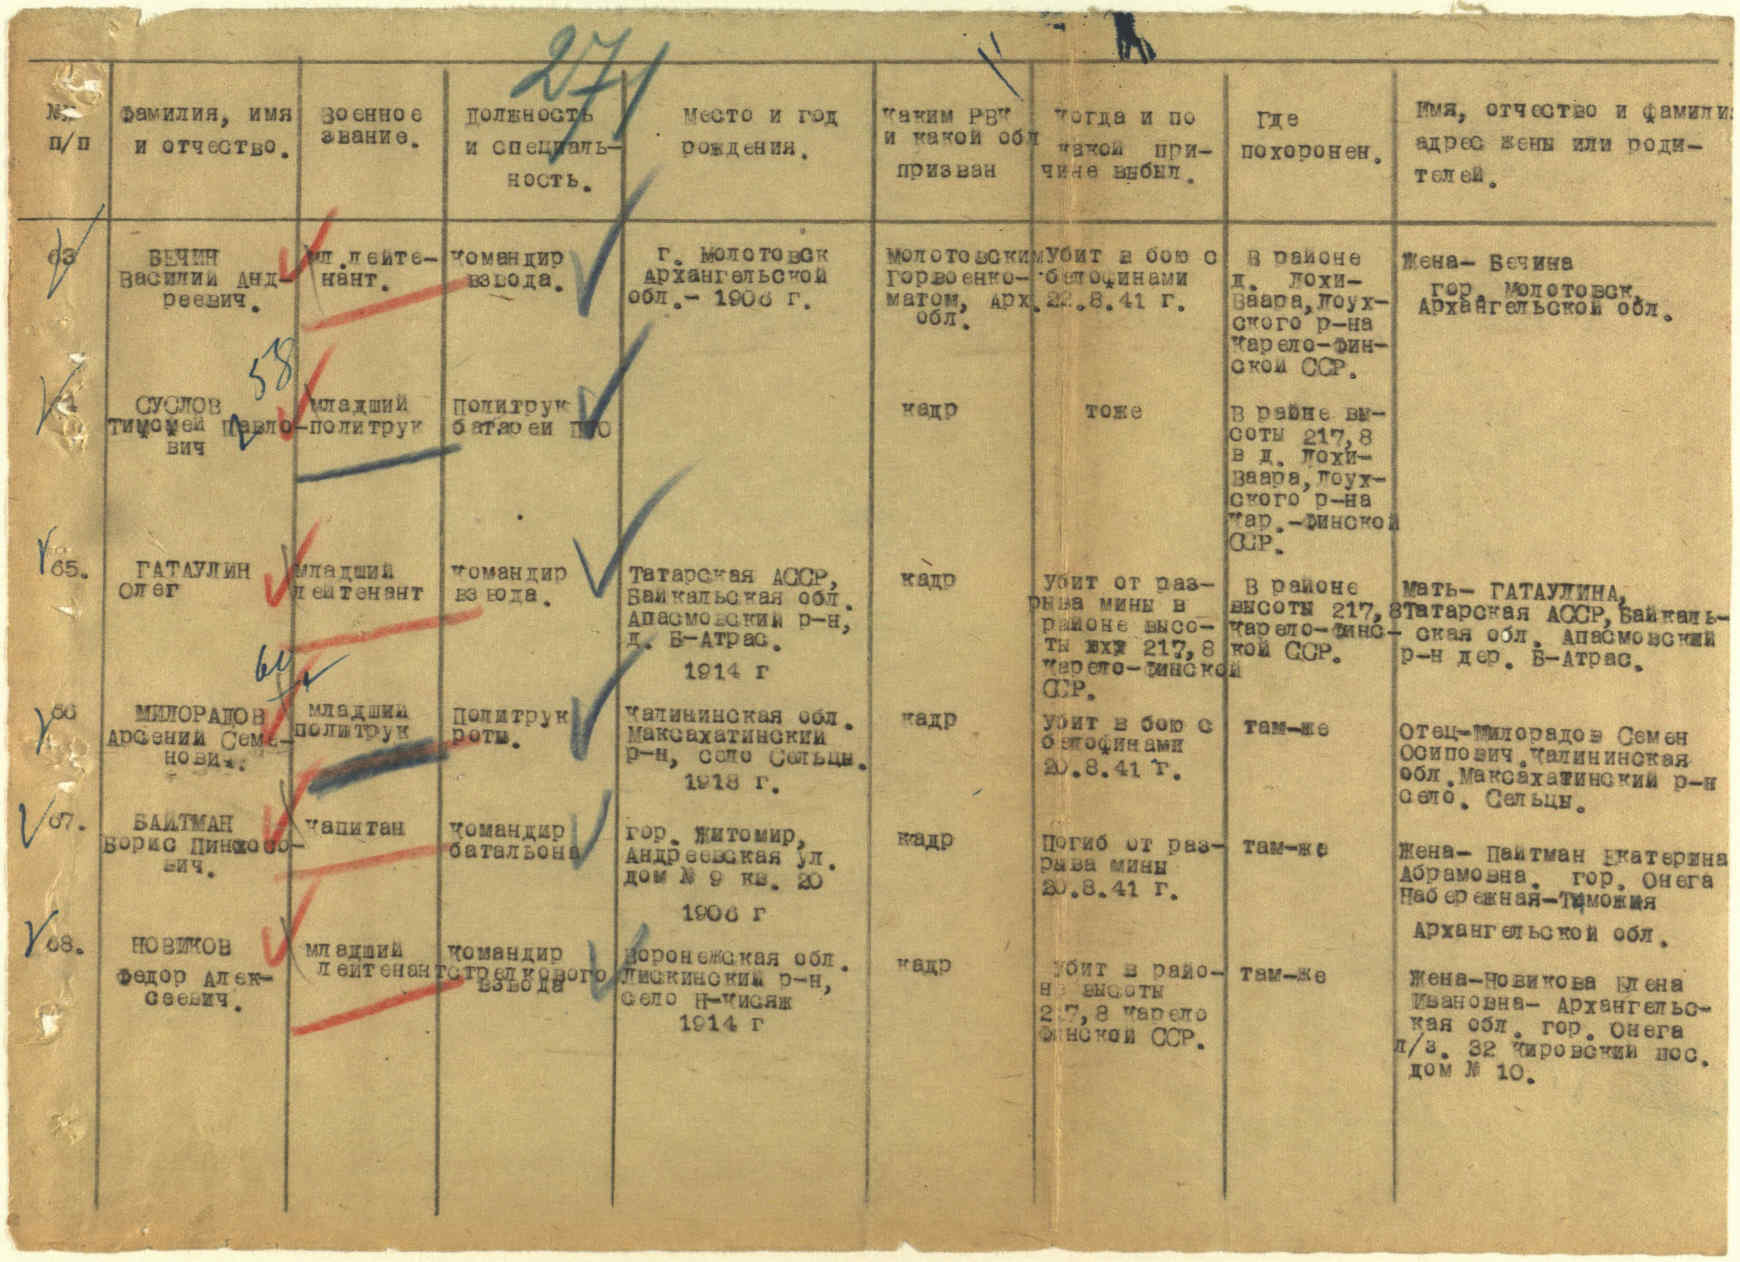 271
№№
п/п
Фамилия, имя
и отчество.
Военное
звание.
Должность
и специаль-
ность.
Место и год
рождения.
Каким РВК
и какой обл
призван
Когда и по
какой при-
чине выбыл.
Где
похоронен.
Имя, отчество и фамилия
адрес жены или роди-
телей.
63
БЕЧИН
Василий Анд-
реевич.
мл.лейте-
нант.
Командир
взвода.
г. Молотовск
Архангельской
обл.- 1906 г.
Молотовским
горвоенко-
матом, Арх.
обл.
Убит в бою с
белофинами
22.8.41 г.
В районе
д. Лохи-
Ваара,Лоух-
ского р-на
Карело-Фин-
ской ССР.
Жена- Бечина
гор. Молотовск,
Архангельской обл.
58
СУСЛОВ
Тимофей Павло-
вич
младший
политрук
Политрук
батареи ПТО
кадр
тоже
В райне вы-
соты 217,8
в д. Лохи-
Ваара,Лоух-
ского р-на
Кар.-Финской
ССР.
65.
ГАТАУЛИН
Олег
младший
лейтенант
Командир
взвода.
Татарская АССР,
Байкальская обл.
Апасмовский р-н,
д. Б-Атрас.
1914 г
кадр
убит от раз-
рыва мины в
районе высо-
ты 217,8
Карело-Финской
ССР.
В районе
высоты 217,8
Карело-Финс-
кой ССР.
Мать- ГАТАУЛИНА,
Татарская АССР,Байкаль-
ская обл. Апасмовский
р-н дер. Б-Атрас.
64
66
МИЛОРАДОВ
Арсений Семе-
нович.
младший
политрук
Политрук
роты.
Калининская обл.
Максахатинский
р-н, село Сельцы.
1918 г.
кадр
убит в бою с
белофинами
20.8.41 г.
там-же
Отец-Милорадов Семен
Осипович.Калининская
обл.Максахатинский р-н
село. Сельцы.
67.
БАЙТМАН
Борис Пинхосо-
вич.
капитан
Командир
батальона
гор. Житомир,
Андреевская ул.
дом № 9 кв. 20
1906 г
кадр
Погиб от раз-
рыва мины
20.8.41 г.
там-же
Жена- Пайтман Екатерина
Абрамовна. гор. Онега
Набережная-Тиможия
Архангельской обл.
68.
НОВИКОВ
Федор Алек-
сеевич.
младший
лейтенант
Командир
стрелкового
взвода
Воронежская обл.
Лискинский р-н,
село Н-Кисляж
1914 г
кадр
Убит в райо-
не высоты
217,8 Карело
Финской ССР.
там-же
Жена-Новикова Елена
Ивановна- Архангельс-
кая обл. гор. Онега
л/з. 32 Кировский пос.
дом № 10.